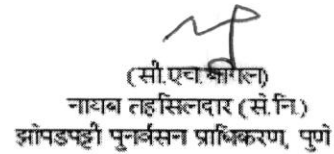 (सी.एच. कागल)
नायब तहसिलदार (सं.नि.)
झोपडपट्टी पुनर्वसन प्राधिकरण, पुणे